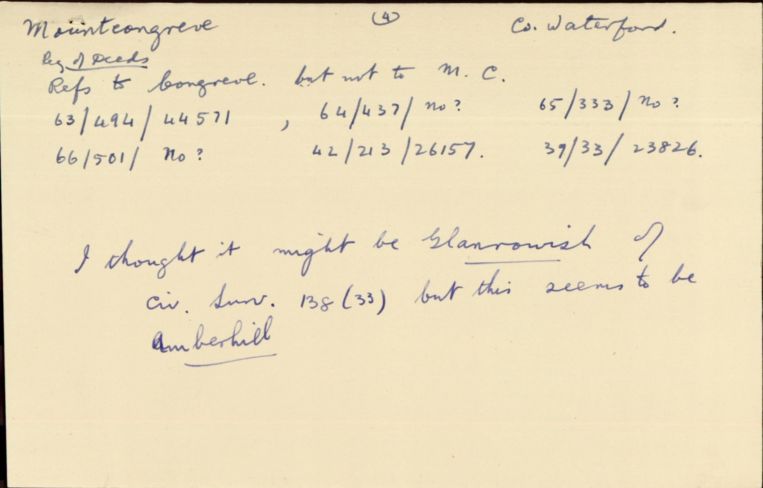 Mountcongreve (4) Co. Waterford.
Reg of Deeds
Refs to Congreve. but not to M. C.
63/494/44571, 64/437/No? 65/333/No?
66/501/No? 42/213/26157. 39/33/23826.
I thought it might be Glanrowish of
Civ. Surv. 138 (33) but this seems to be
Amberhill